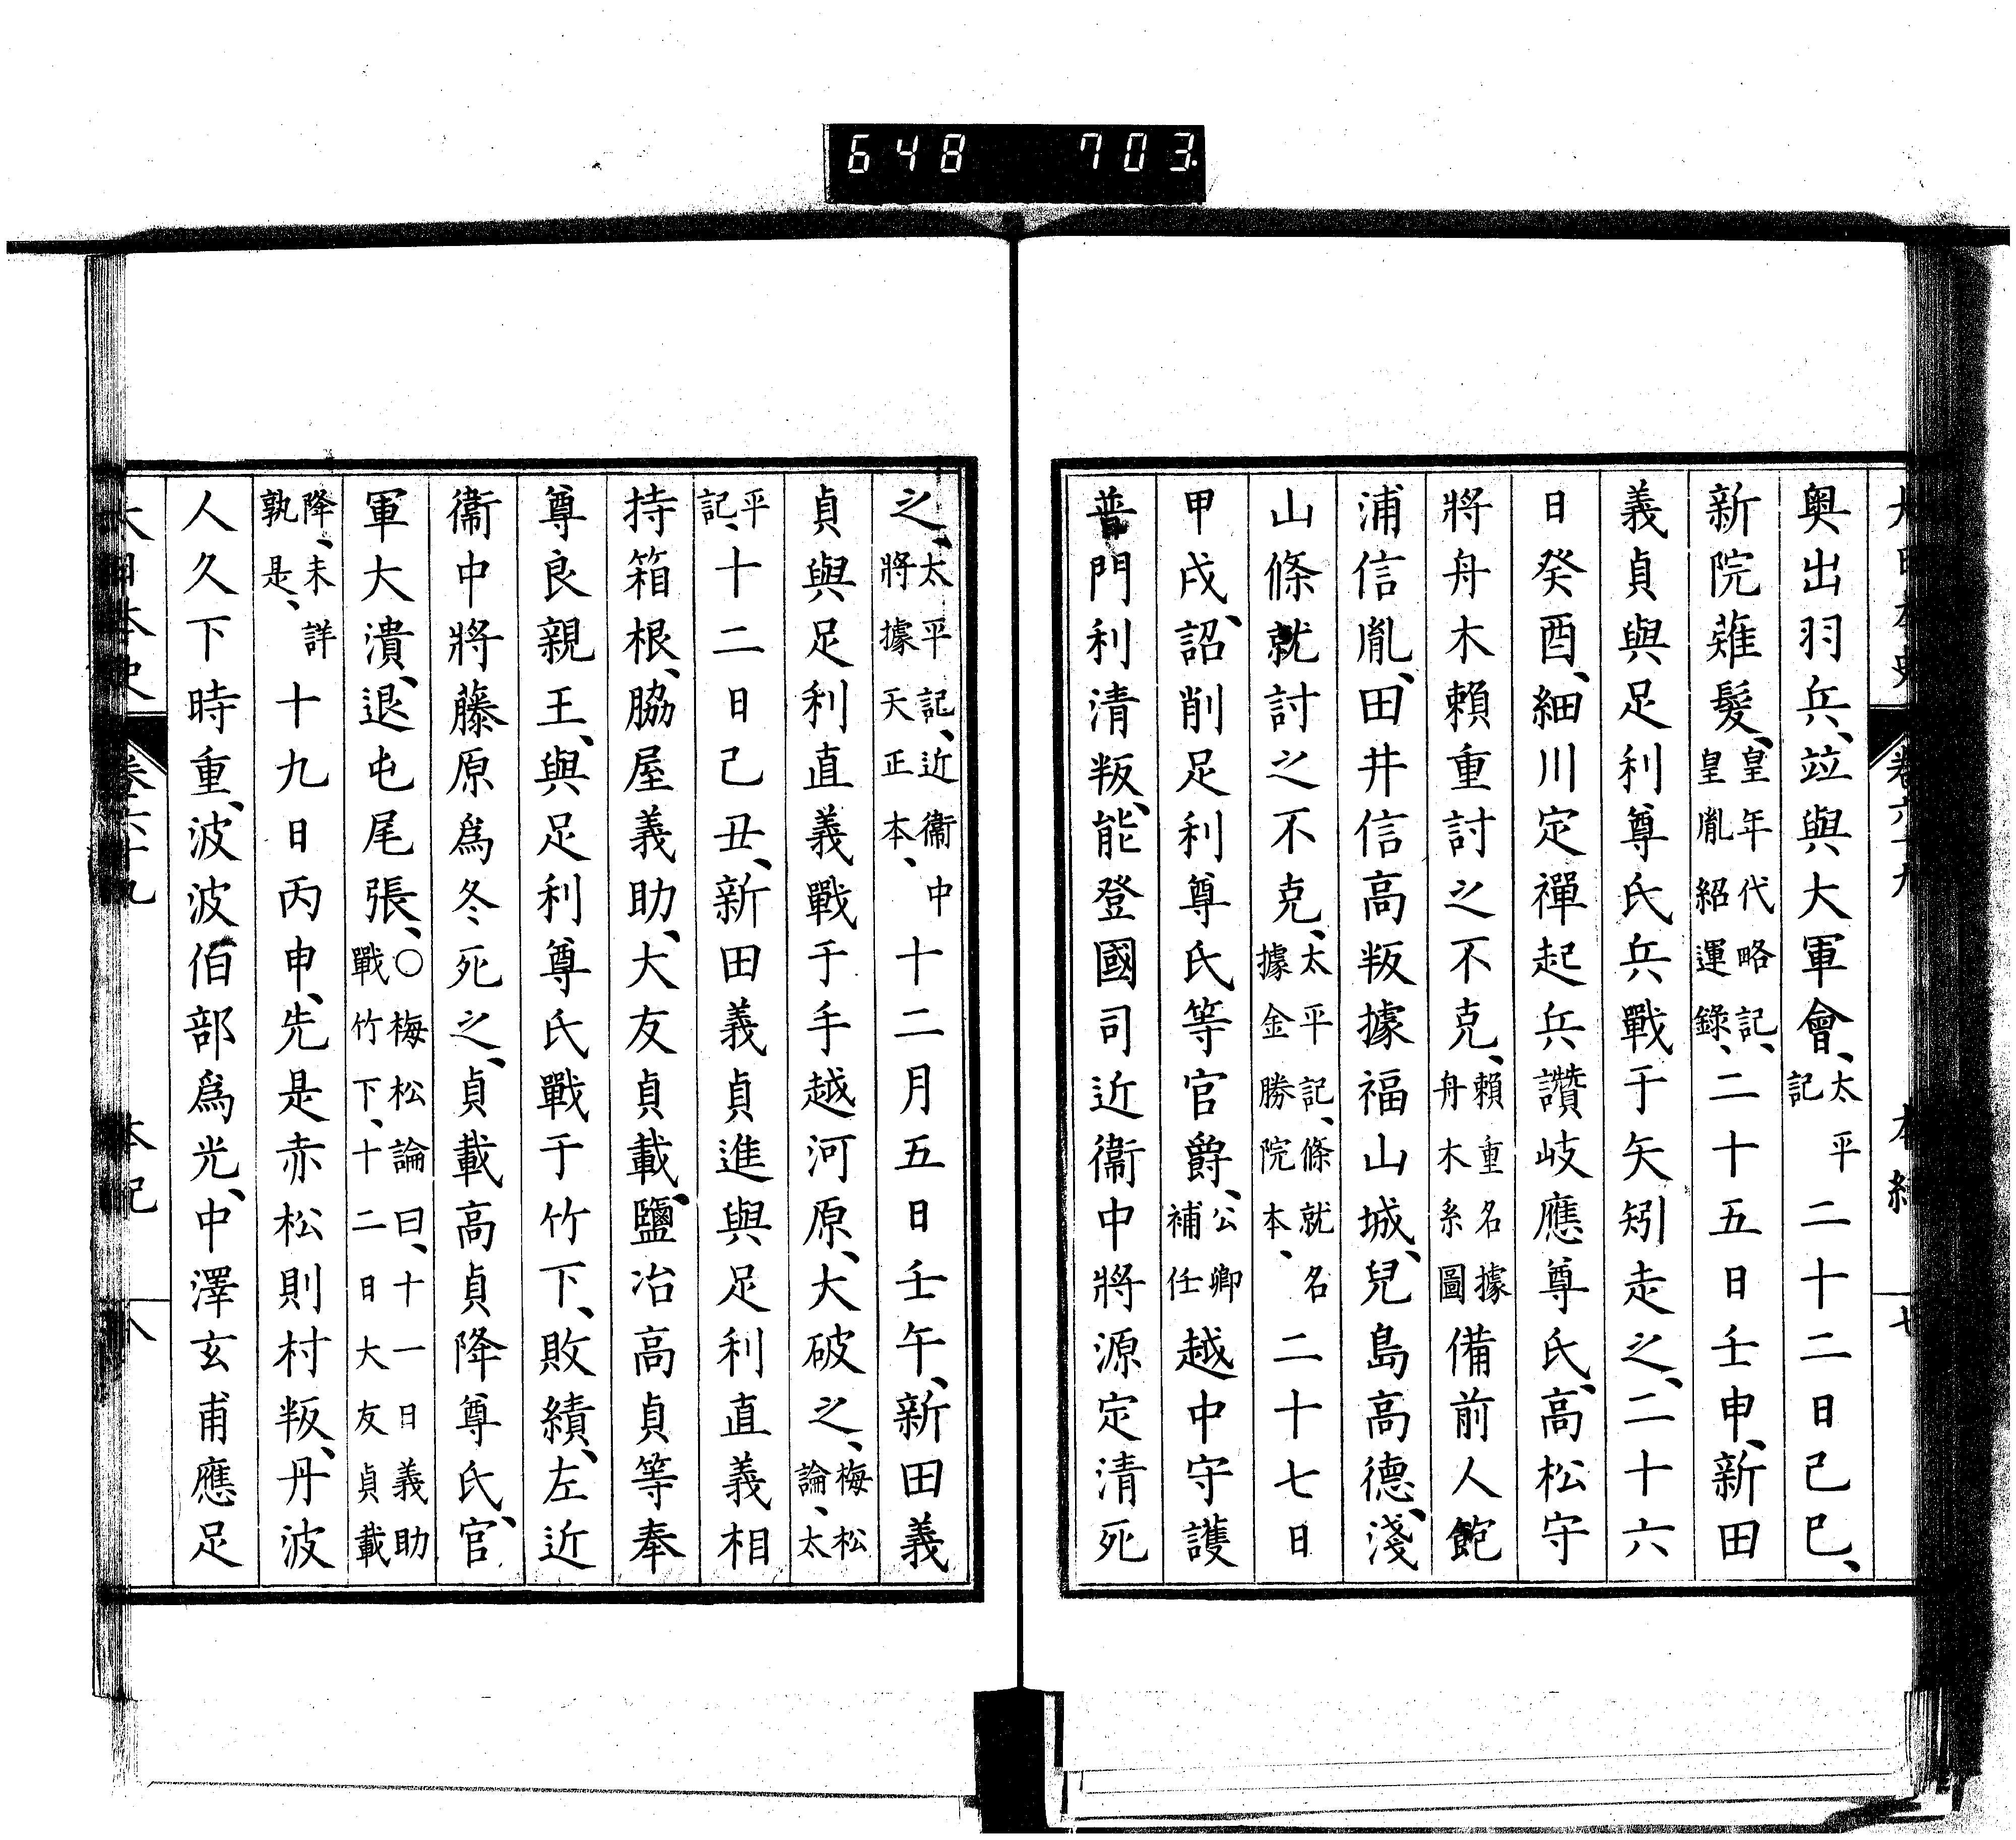 648 703.
奧出羽兵、竝與大軍會、太平記二十二日己巳、
新院薙髮、皇年代略記、皇胤紹運錄、二十五日壬申、新田
義貞與足利尊氏兵戰于矢矧走之、二十六
日癸酉、細川定禪起兵讚岐應尊氏、高松守
將舟木賴重討之不克、賴重名據舟木系圖備前人飽
浦信胤、田井信高叛據福山城、兒島高德、淺
山條就討之不克、太平記、條就名據金勝院本、二十七日
甲戌、詔削足利尊氏等官爵、公卿補任越中守護
普門利清叛、能登國司近衞中將源定清死
之、太平記、近衞中將據天正本、十二月五日壬午、新田義
貞與足利直義戰于手越河原、大破之、梅松論、太
平記、十二日己丑、新田義貞進與足利直義相
持箱根、脇屋義助、大友貞載、鹽冶高貞等奉
尊良親王、與足利尊氏戰于竹下、敗績、左近
衞中將藤原爲冬死之、貞載高貞降尊氏、官
軍大潰、退屯尾張、○梅松論曰、十一日義助戰竹下、十二日大友貞載
降、未詳孰是、十九日丙申、先是赤松則村叛、丹波
人久下時重、波波伯部爲光、中澤玄甫應足
大日本史 卷六十九 本紀 八